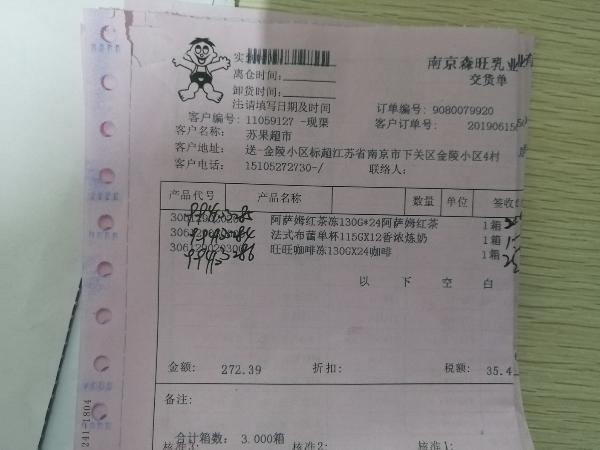 南京森旺乳业有
交货单
离仓时间:
卸货时间:
注:请填写日期及时间
订单编号: 9080079920
客户编号: 11059127 -现渠
客户订单号: 20190615
客户名称: 苏果超市
客户地址: 送-金陵小区标超江苏省南京市下关区金陵小区4村
客户电话: 15105272730-/ 联络人:
产品代号 产品名称 数量 单位 签收
阿萨姆红茶冻130G*24阿萨姆红茶 1箱
法式布蕾单杯115GX12香浓炼奶 1箱
旺旺咖啡冻130GX24咖啡 1箱
以 下 空 白
金额: 272.39 折扣: 税额: 35.4
备注:
合计箱数: 3.000箱
核准3: 核准2: 核准1:
241-1804